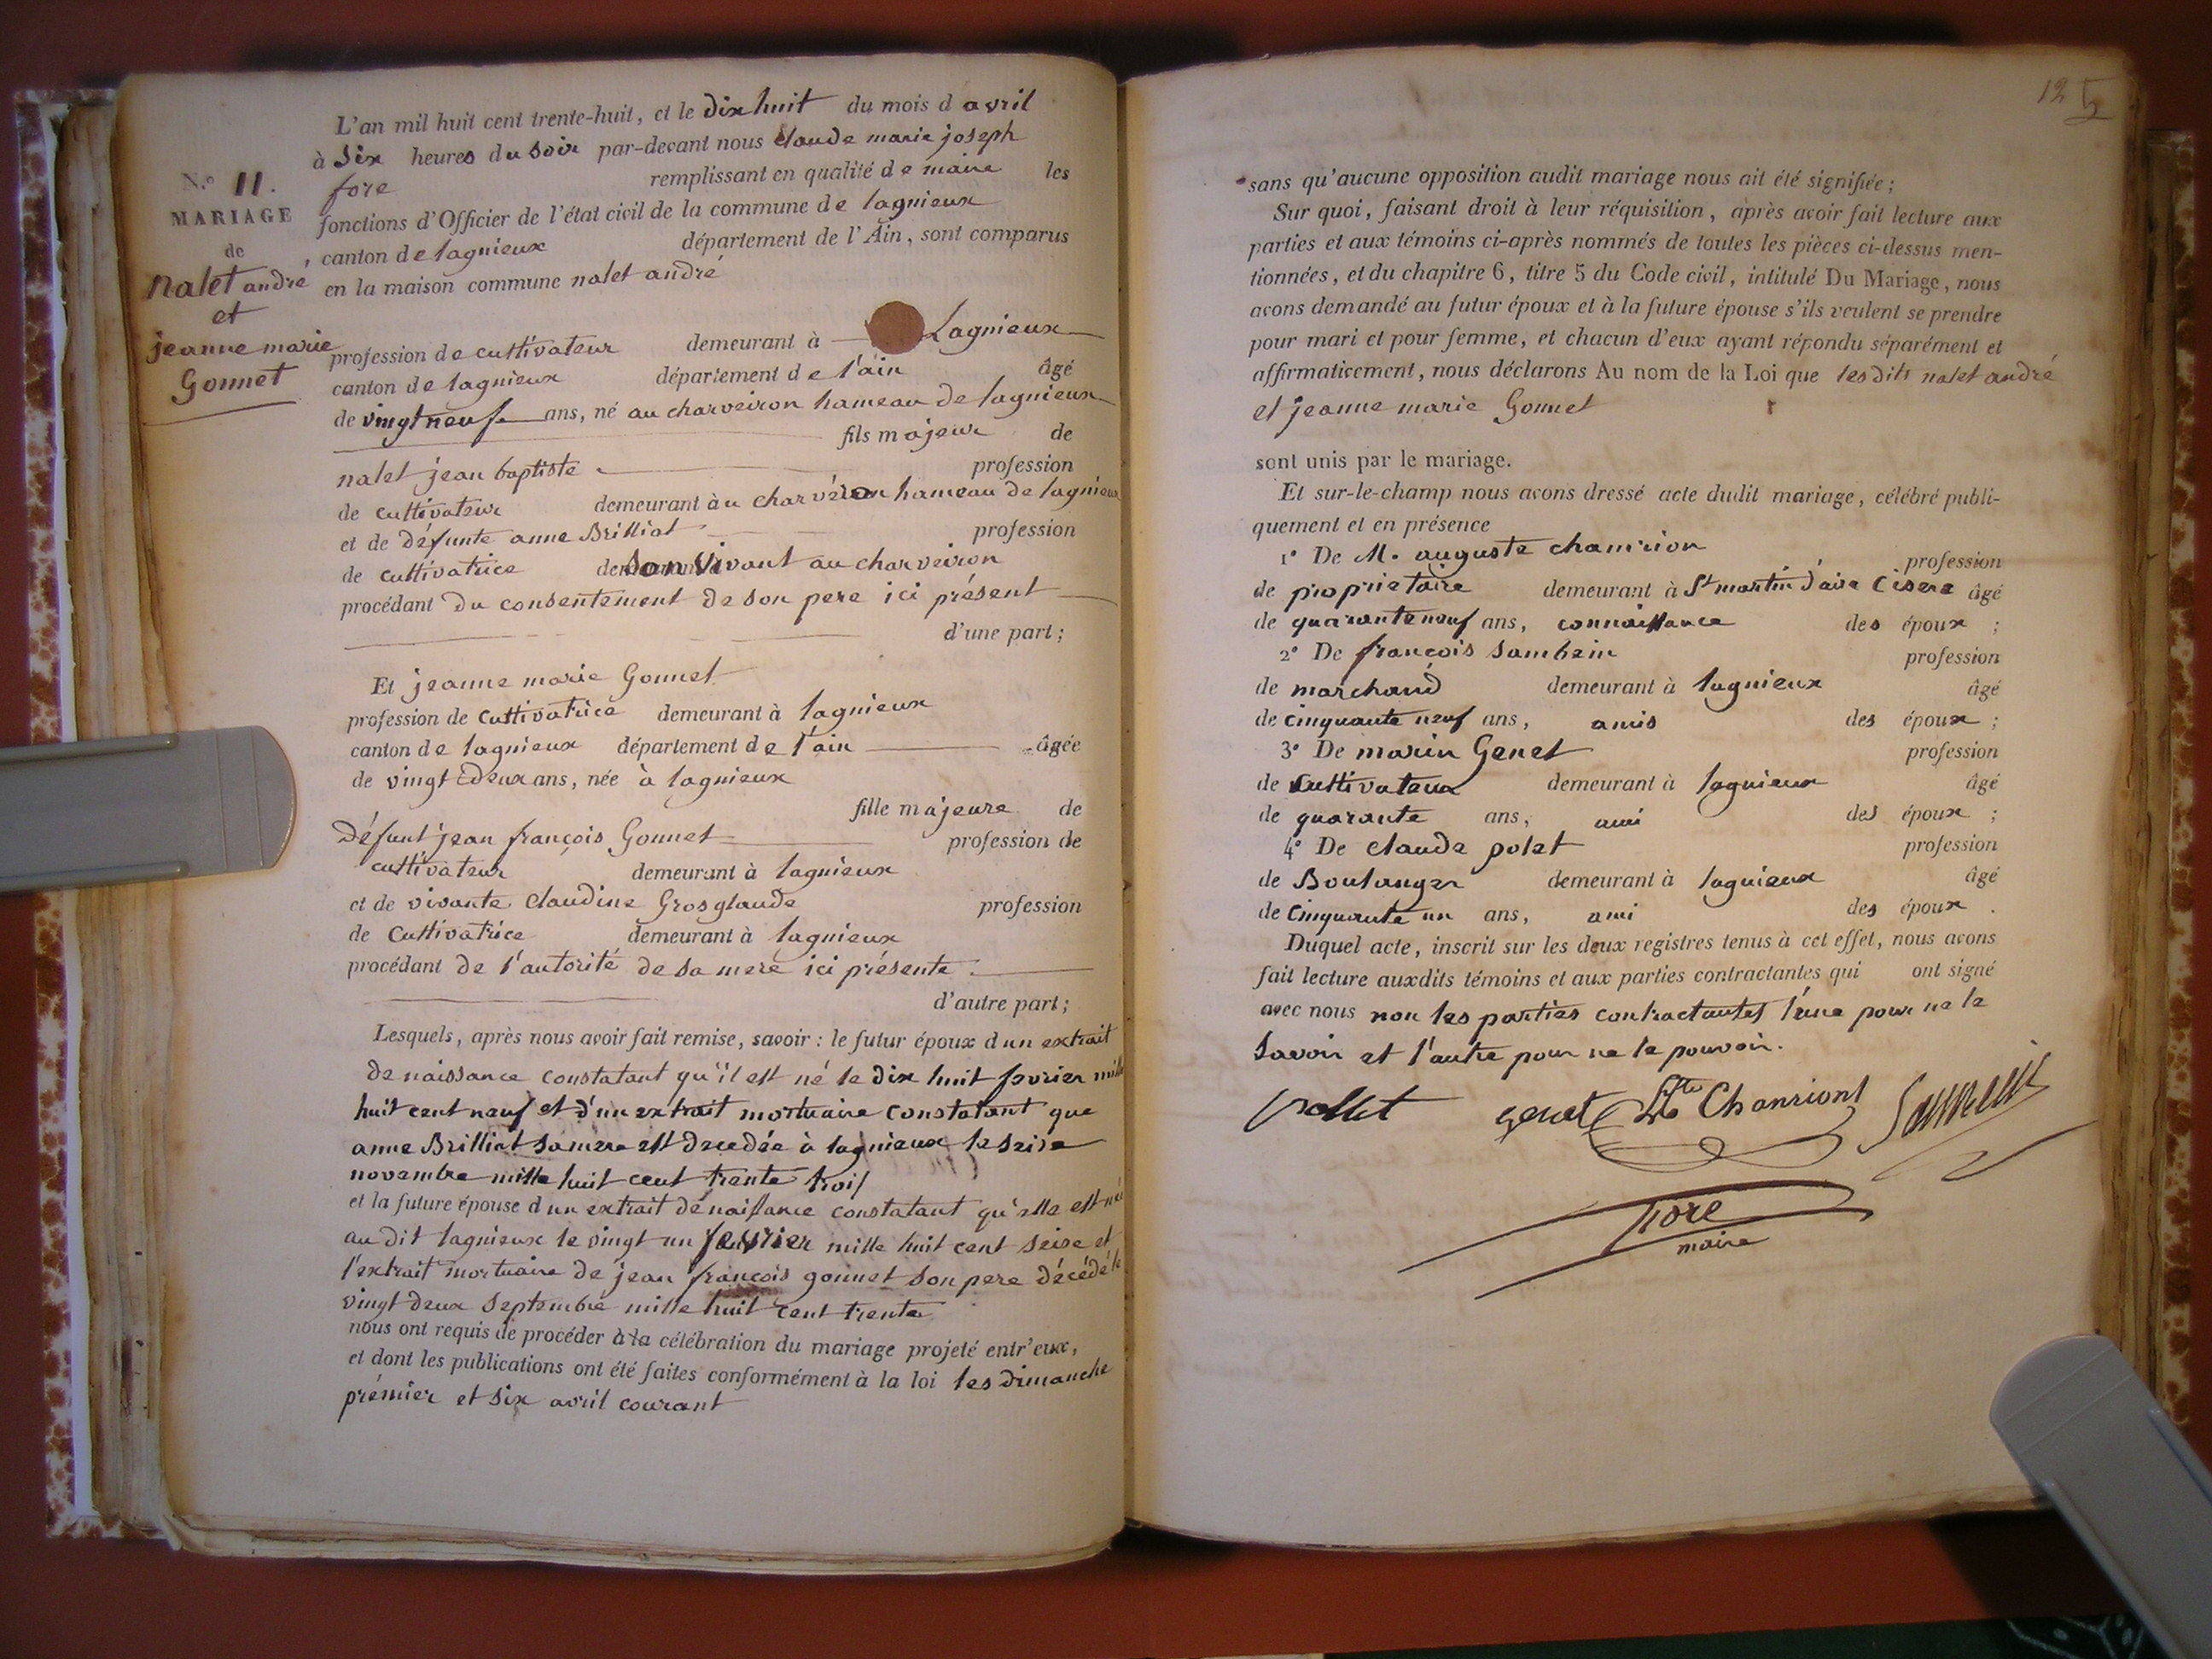 N.° 11.
MARIAGE
de
nalet andré
et
jeanne marie
Gonnet
L'an mil huit cent trente-huit, et le dix huit du mois d avril
à Six heures du soir par-devant nous claude marie joseph
fore remplissant en qualité de maire les
fonctions d'Officier de l'état civil de la commune de lagnieux
canton de lagnieux département de l'Ain, sont comparus
en la maison commune nalet andré
profession de cultivateur demeurant à Lagnieux
canton de lagnieux département de l'ain âgé
de vingt neuf ans, né au charveiron hameau de lagnieux
fils majeur de
nalet jean baptiste profession
de cultivateur demeurant àu charvéron hameau de lagnieux
et de défunte anne Brilliat profession
de cultivatrice son Vivant au charveiron
procédant du consentement de son pere ici présent
d'une part;
Et jeanne marie Gonnet
profession de cultivatrice demeurant à lagnieux
canton de lagnieux département de l'ain âgée
de vingt deux ans, née à lagnieux
fille majeure de
Défunt jean françois Gonnet profession de
cultivateur demeurant à lagnieux
et de vivante Claudine Grosglaude profession
de Cultivatrice demeurant à lagnieux
procédant de l'autorité de sa mere ici présente
d'autre part;
Lesquels, après nous avoir fait remise, savoir : le futur époux d un extrait
de naissance constatant qu'il est né le dix huit fevrier mille
huit cent neuf et d'un extrait mortuaire constatant que
anne Brilliat sa mere est decedée à lagnieux le seise
novembre mille huit cent trente trois
et la future épouse d un extrait de naissance constatant qu'elle est née
au dit lagnieux le vingt un fevrier mille huit cent seise et
l'extrait mortuaire de jean françois gonnet son pere décédé le
vingt deux septembre mille huit cent trente
nous ont requis de procéder à la célébration du mariage projeté entr'eux,
et dont les publications ont été faites conformément à la loi les dimanche
prémier et six avril courant
12 5
sans qu'aucune opposition audit mariage nous ait été signifiée;
Sur quoi, faisant droit à leur réquisition, après avoir fait lecture aux
parties et aux témoins ci-après nommés de toutes les pièces ci-dessus men-
tionnées, et du chapitre 6, titre 5 du Code civil, intitulé Du Mariage, nous
avons demandé au futur époux et à la future épouse s'ils veulent se prendre
pour mari et pour femme, et chacun d'eux ayant répondu séparément et
affirmativement, nous déclarons Au nom de la Loi que les dits nalet andré
et jeanne marie Gonnet
sont unis par le mariage.
Et sur-le-champ nous avons dressé acte dudit mariage, célébré publi-
quement et en présence
1° De M. auguste chanrion profession
de proprietaire demeurant à St martin d'aire Cisere âgé
de quarante neuf ans, connaissance des époux ;
2° De françois Sambein profession
de marchand demeurant à lagnieux âgé
de cinquante neuf ans, amis des époux ;
3° De marin Genet profession
de cultivateur demeurant à lagnieux âgé
de quarante ans, ami des époux ;
4° De claude polet profession
de Boulanger demeurant à lagnieux âgé
de Cinquante un ans, ami des époux .
Duquel acte, inscrit sur les deux registres tenus à cet effet, nous avons
fait lecture auxdits témoins et aux parties contractantes qui ont signé
avec nous non les parties contractantes l'une pour ne le
Savoir et l'autre pour ne le pouvoir.
pollet genet Chanriont
fore
maire